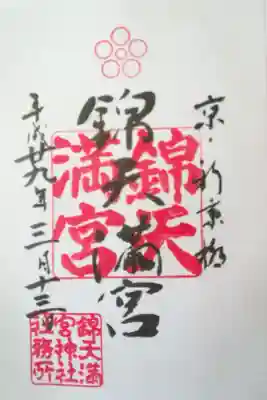 京・新京極
錦天満宮
錦天
満宮
平成廿九年三月十三日
錦天満
宮神社
社務所